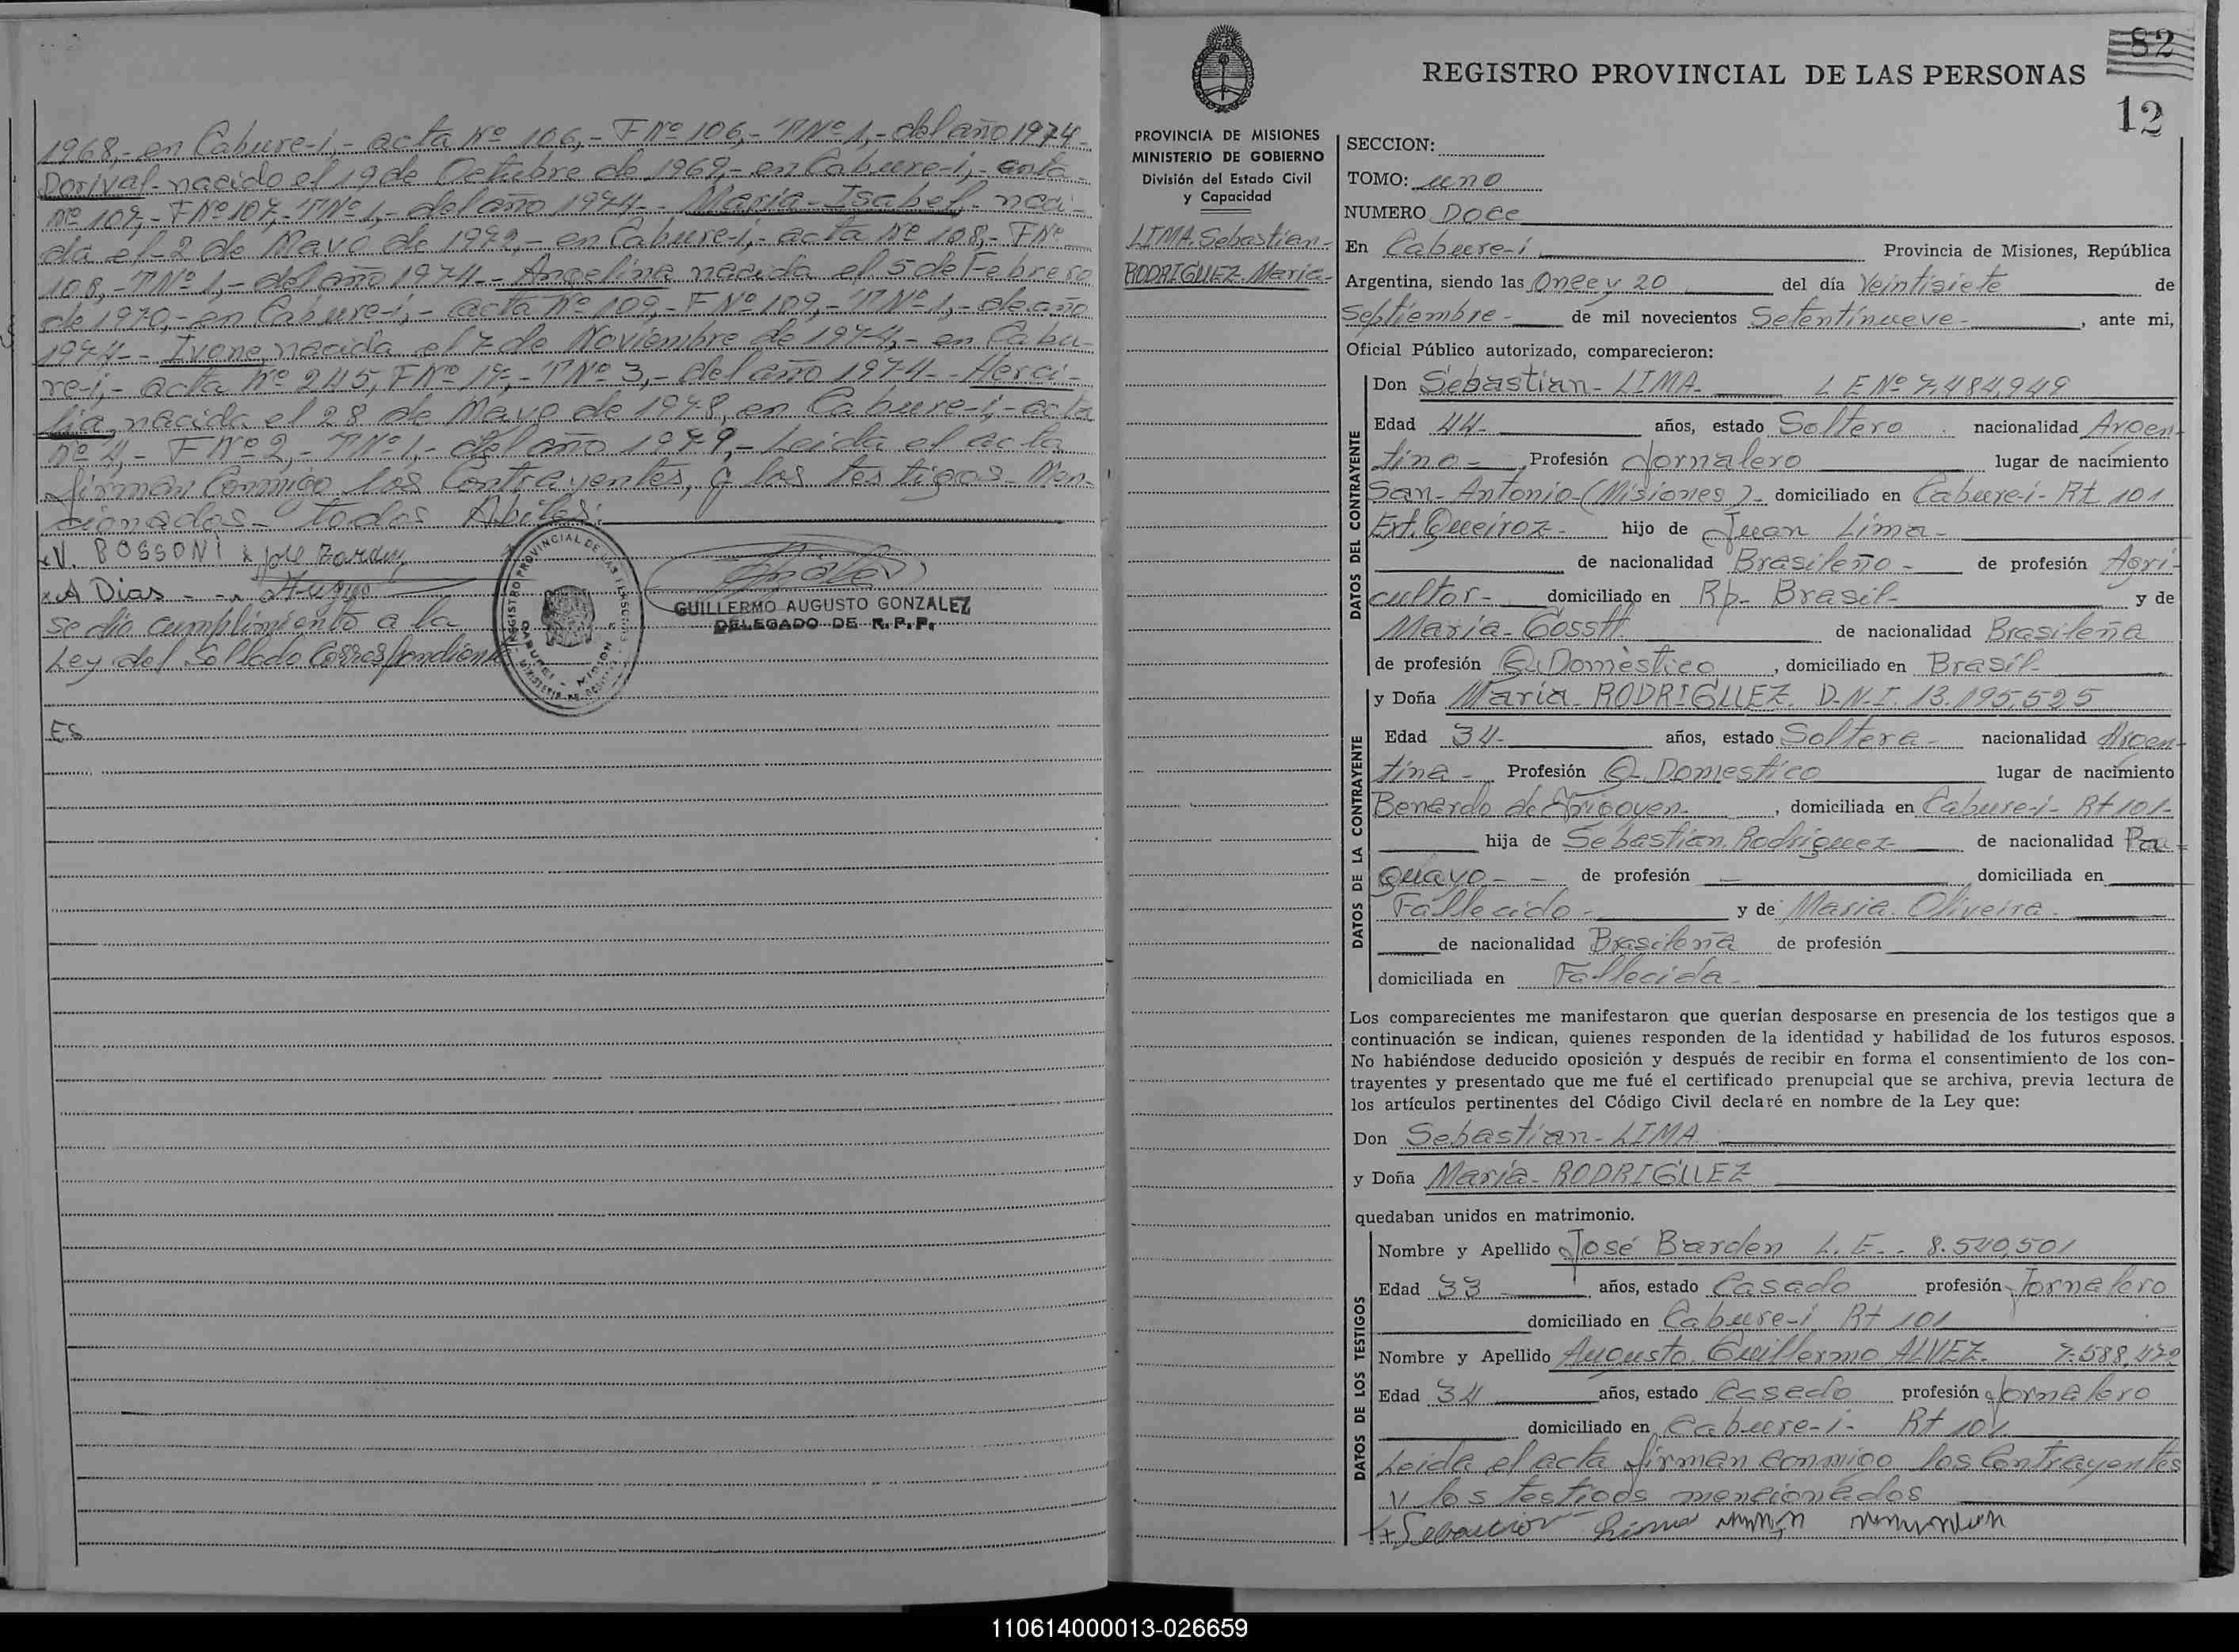 1968,- en Cabure-i,- acta Nº 106,- F Nº 106,- T Nº 1,- del año 1974-
Dorival- nacido el 19 de Octubre de 1969,- en Cabure-i,- acta
Nº 107,- F Nº 107,- T Nº 1,- del año 1974-- María-Isabel- naci-
da el 2 de Mayo de 1972,- en Cabure-i,- acta Nº 108,- F Nº
108,- T Nº 1,- del año 1974-- Angelina nacida el 5 de Febrero
de 1970,- en Cabure-i,- acta Nº 109,- F Nº 109,- T Nº 1,- de año
1974-- Ivone, nacida el 7 de Noviembre de 1974,- en Cabu-
re-i,- acta Nº 245, F Nº 17,- T Nº 3,- del año 1974-- Herci-
lia, nacida el 28 de Mayo de 1978, en Cabure-i,- acta
Nº 4,- F Nº 2,- T Nº 1,- del año 1979,- Leida el acta
firman Conmigo los Contrayentes, y los testigos- Men-
cionados- todos Abiles.
V. POSSONI x José Barden
x A Dias
se dio cumplimiento a la
Ley del Sellado Correspondiente
REGISTRO PROVINCIAL DE LAS PERSONAS
GUILLERMO AUGUSTO GONZALEZ
DELEGADO DE R.P.P.
ES
82
REGISTRO PROVINCIAL DE LAS PERSONAS
12
PROVINCIA DE MISIONES
MINISTERIO DE GOBIERNO
División del Estado Civil
y Capacidad
LIMA, Sebastian-
RODRIGUEZ- Maria-
SECCION:
TOMO: uno
NUMERO Doce
En Cabure-i Provincia de Misiones, República
Argentina, siendo las Once y 20 del día Veintisiete de
Septiembre- de mil novecientos Setentinueve- , ante mi,
Oficial Público autorizado, comparecieron:
DATOS DEL CONTRAYENTE
Don Sebastian- LIMA- L E Nº 7.484,949
Edad 44- años, estado Soltero nacionalidad Argen-
tino- , Profesión Jornalero lugar de nacimiento
San-Antonio-(Misiones)- domiciliado en Cabure-i- Rt 101
Ext. Queiroz- hijo de Juan Lima-
de nacionalidad Brasileño- de profesión Agri-
cultor- domiciliado en Rp- Brasil- y de
María- de nacionalidad Brasileña
de profesión Q. Doméstico , domiciliado en Brasil-
DATOS DE LA CONTRAYENTE
y Doña María- RODRIGUEZ. D-N-I. 13.195,525
Edad 34- años, estado Soltera- nacionalidad Argen-
tina- Profesión Q- Domestico lugar de nacimiento
Benardo de Irigoyen- , domiciliada en Cabure-i- Rt 101-
hija de Sebastian Rodriguez- de nacionalidad Para-
guayo- - de profesión — domiciliada en
Fallecido- y de María. Oliveira.
de nacionalidad Brasileña de profesión
domiciliada en Fallecida-
Los comparecientes me manifestaron que querían desposarse en presencia de los testigos que a
continuación se indican, quienes responden de la identidad y habilidad de los futuros esposos.
No habiéndose deducido oposición y después de recibir en forma el consentimiento de los con-
trayentes y presentado que me fué el certificado prenupcial que se archiva, previa lectura de
los artículos pertinentes del Código Civil declaré en nombre de la Ley que:
Don Sebastian- LIMA
y Doña María- RODRIGUEZ
quedaban unidos en matrimonio.
DATOS DE LOS TESTIGOS
Nombre y Apellido José Barden L. E.. 8.540,501
Edad 33 años, estado Casado profesión Jornalero
domiciliado en Cabure-i Rt 101
Nombre y Apellido Augusto. Guillermo ALVEZ. 7.588,472
Edad 34 años, estado Casado profesión Jornalero
domiciliado en Cabure-i- Rt 101
Leida el acta firman conmigo los Contrayentes
y los testigos mencionados
Sebastian Lima
110614000013-026659